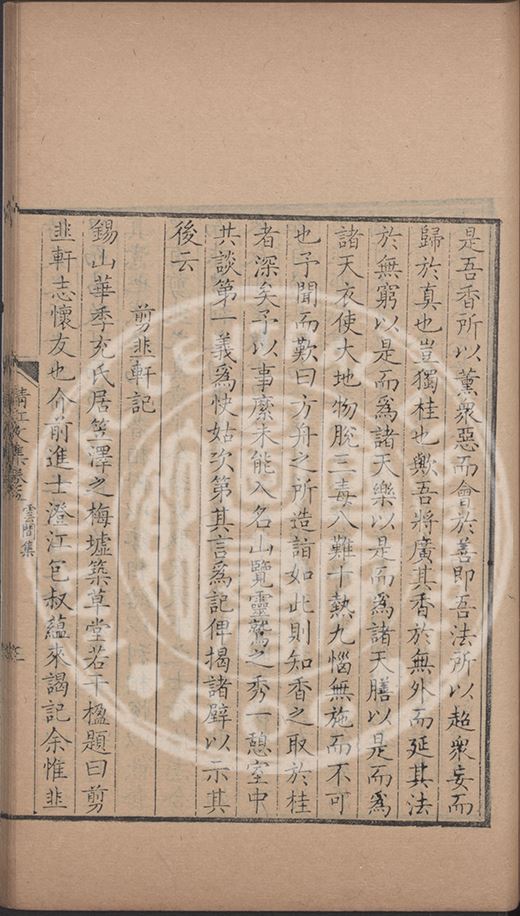 是吾香所以薰衆惡而會於善即吾法所以超衆妄而
歸於真也豈獨桂也歟吾將廣其香於無外而延其法
於無窮以是而爲諸天樂以是而爲諸天膳以是而爲
諸天衣使大地物脫三毒八難十熱九惱無施而不可
也予聞而歎曰方舟之所造詣如此則知香之取於桂
者深矣予以事縻未能入名山覽靈鷲之秀一憩室中
共談第一義爲快姑次第其言爲記俾揭諸壁以示其
後云
剪韭軒記
錫山華季充氏居笠澤之梅墟築草堂若干楹題曰剪
韭軒志懷友也介前進士澄江包叔蘊來謁記余惟韭
清江文集
雲間集